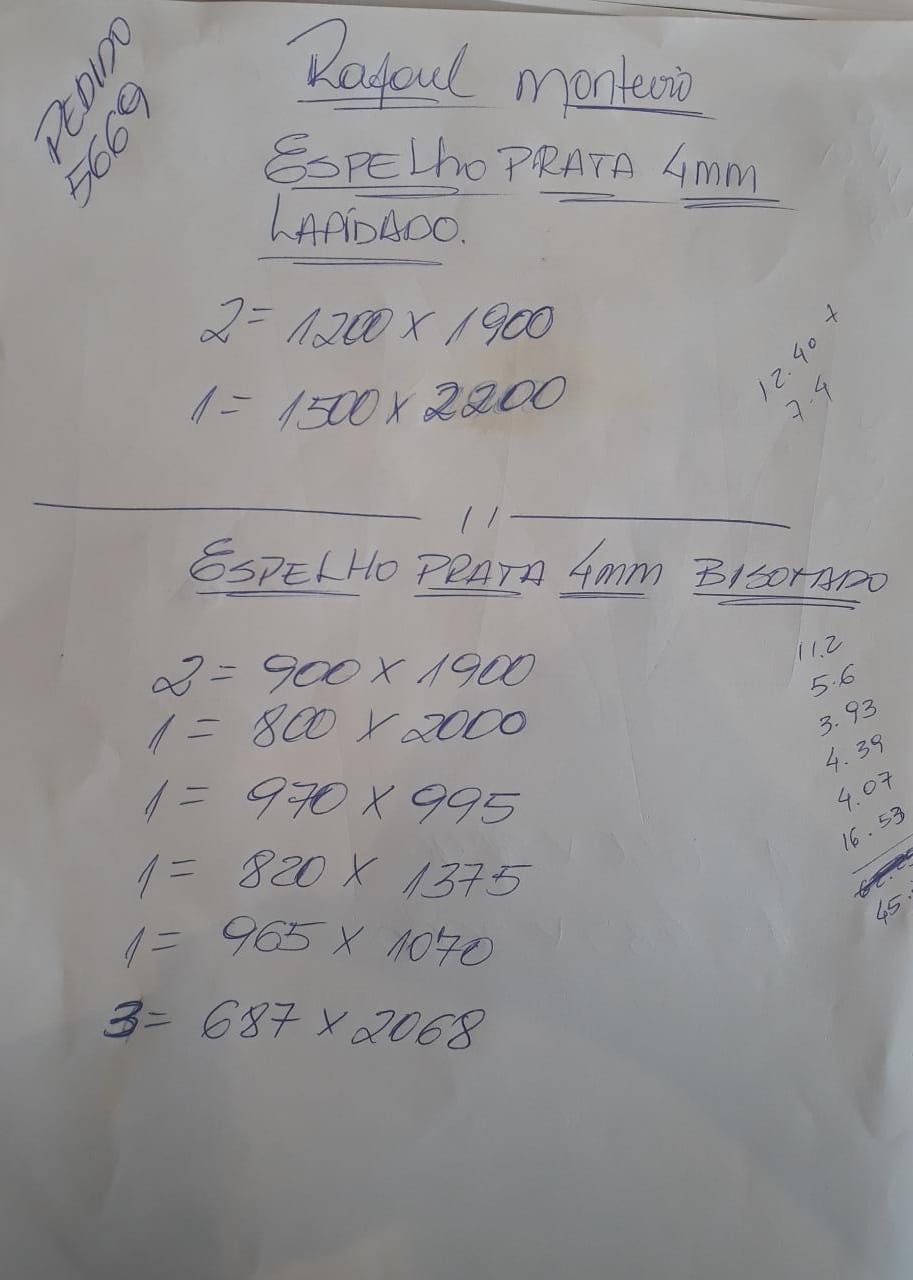 PEDIDO
5669
Rafael Monteiro
ESPELhO PRATA 4mm
LAPIDADO.
2= 1200 x 1900
1= 1500 x 2200
x
12.40
7.4
11
ESPELHO PRATA 4mm BISOTADO
2= 900 x 1900
1= 800 x 2000
1= 970 x 995
1= 820 x 1375
1= 965 x 1070
3= 687 x 2068
11.2
5.6
3.93
4.39
4.07
16.53
45.